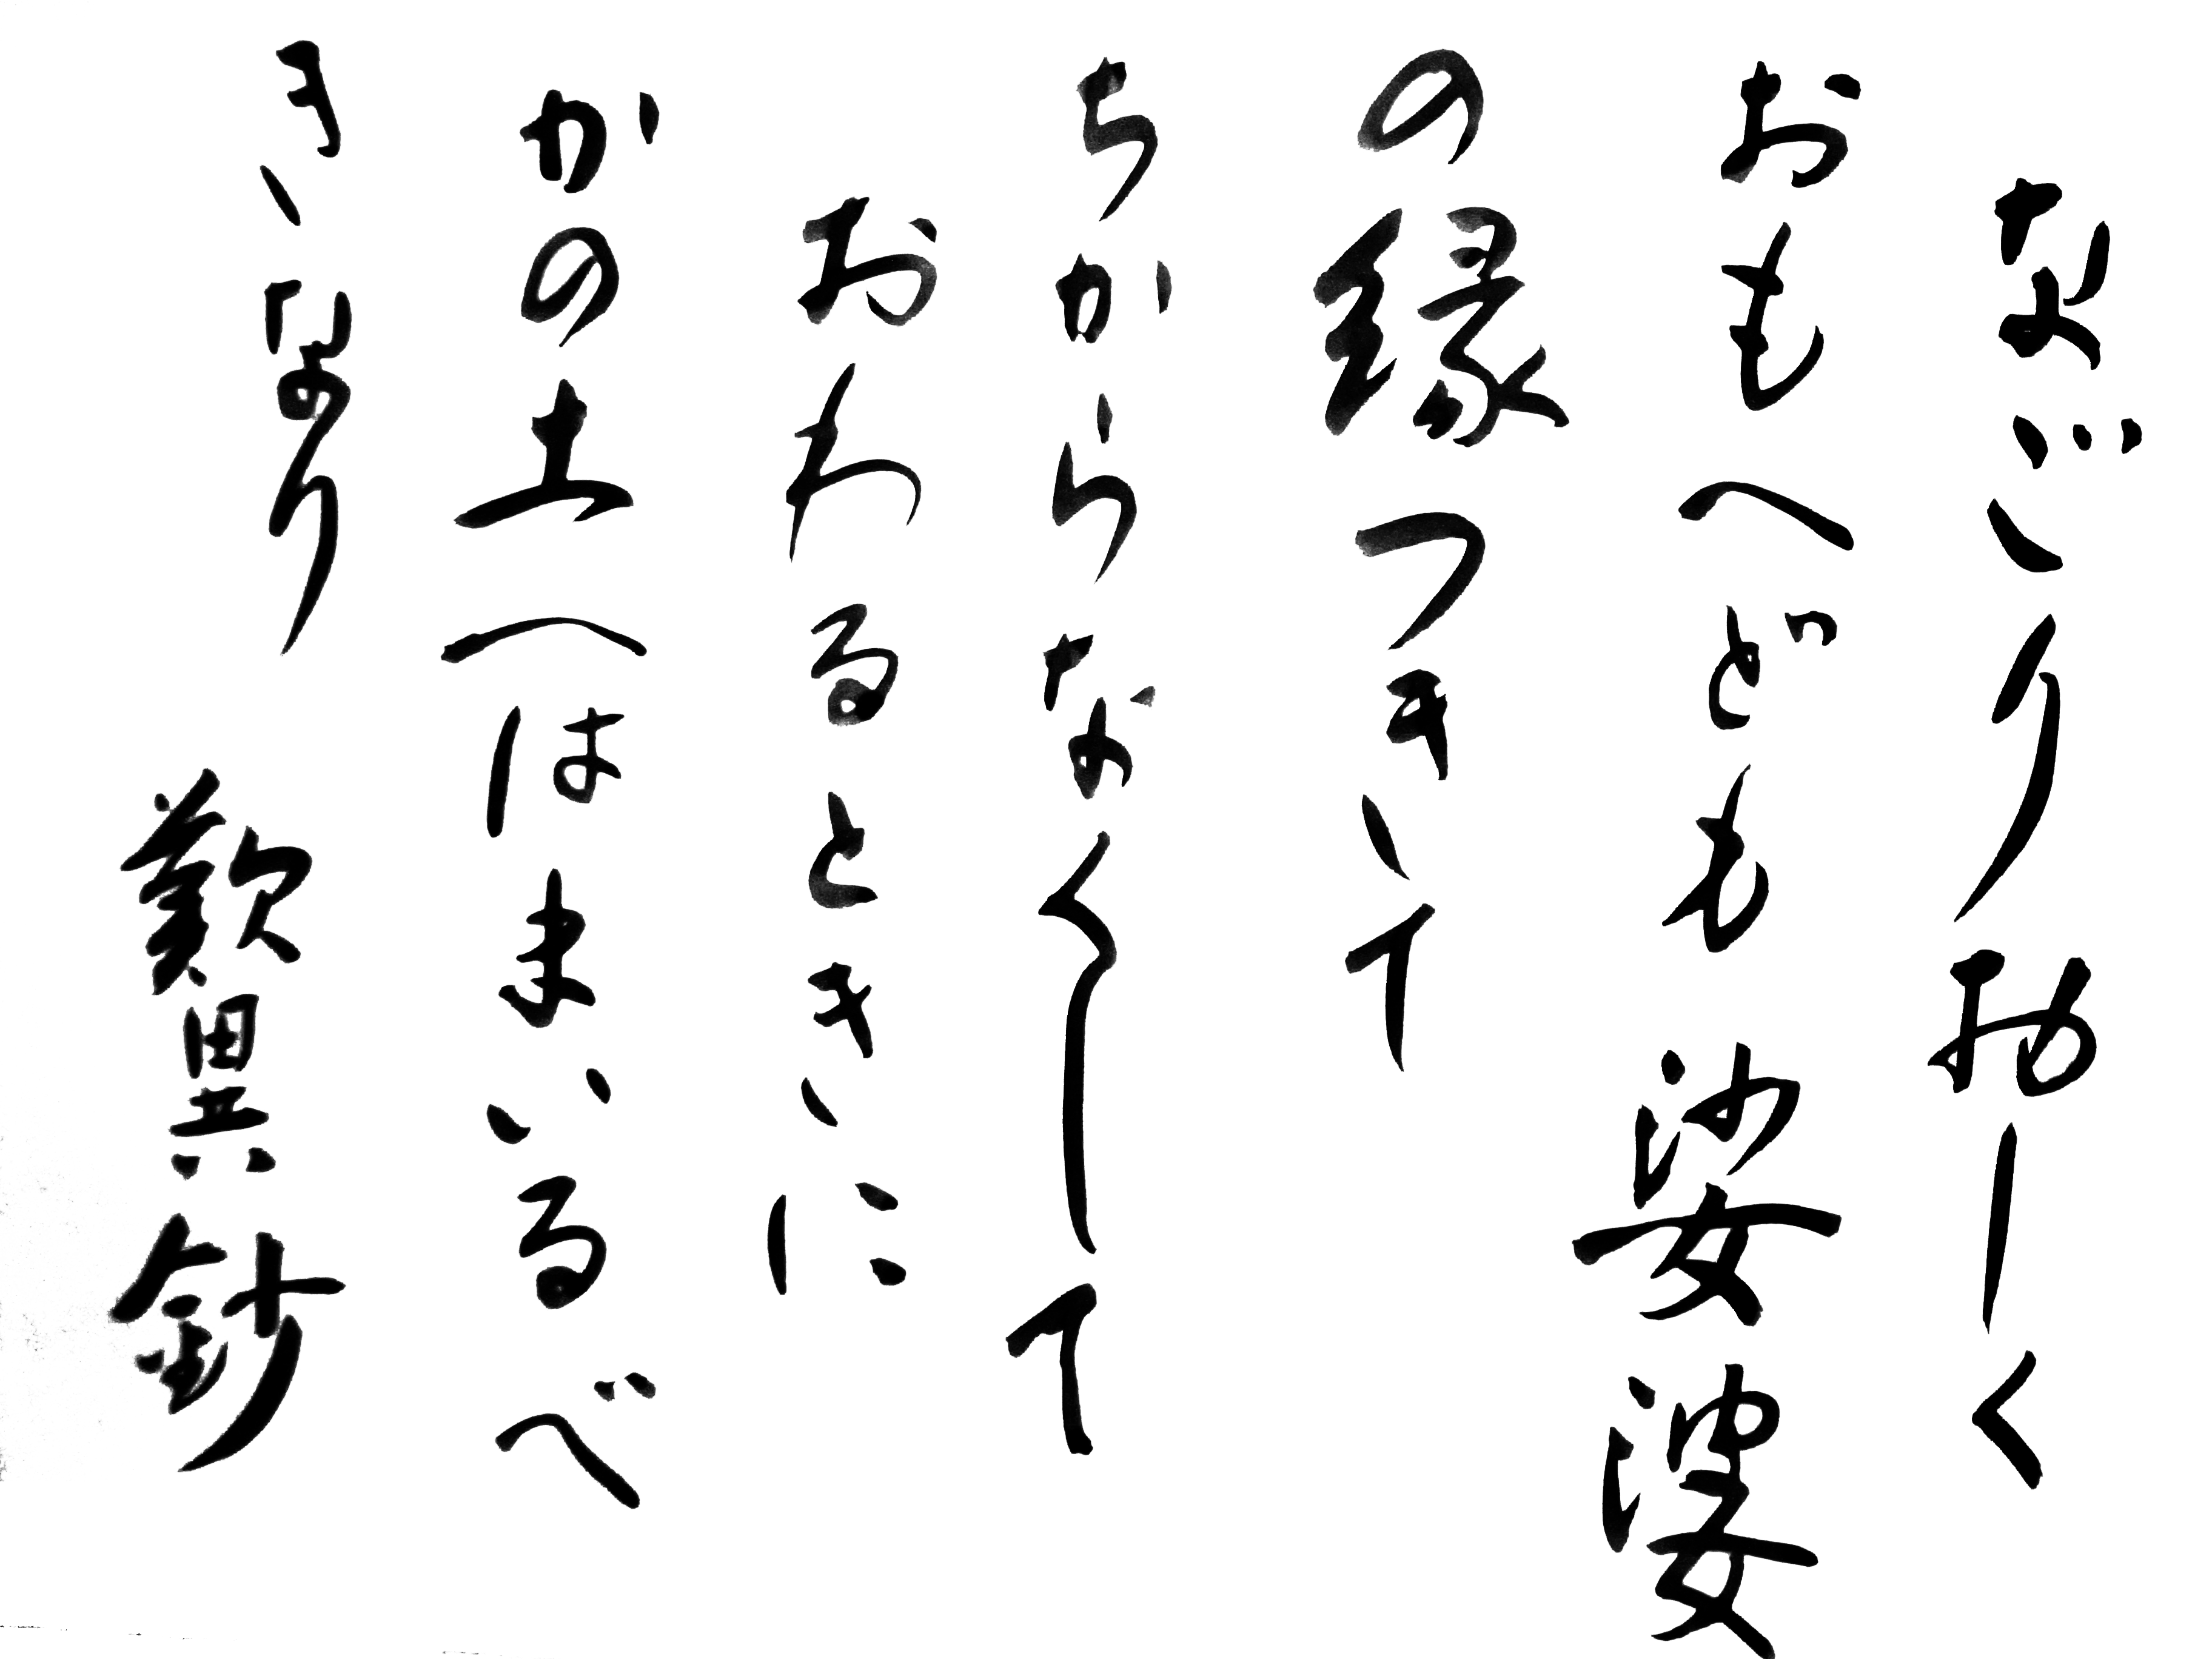 なごり惜しく
おもへども娑婆
の縁つきて
ちからなくして
おわるときに
かの土へはまいるべ
きなり 歎異鈔